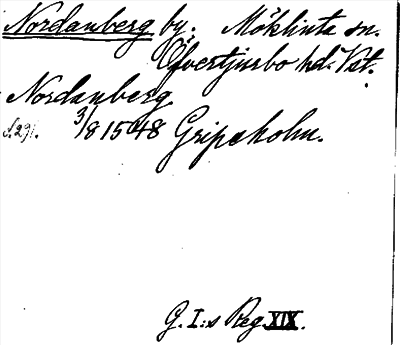 Nordanberg by; Möklinta sn.
Öfvertjurbo hd. Vst.
Nordanberg
S. 291. 3/8 1548 Gripsholm.
G. I:s Reg. XIX.